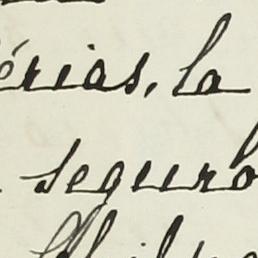 érias, la
seguro